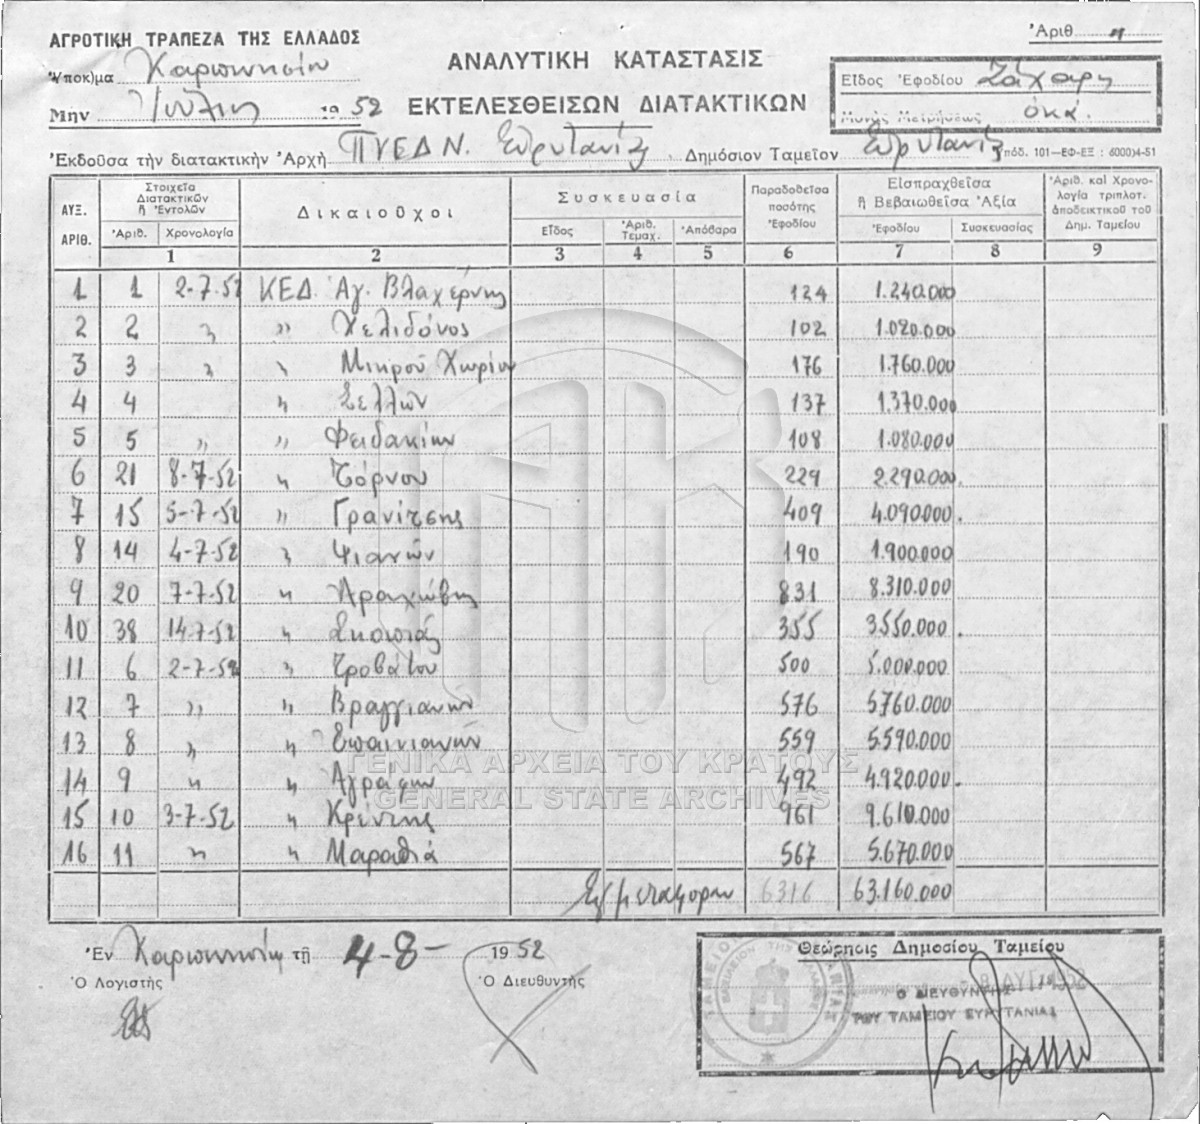 Ἀριθ.
ΑΓΡΟΤΙΚΗ ΤΡΑΠΕΖΑ ΤΗΣ ΕΛΛΑΔΟΣ
Ὑποκ)μα Καρπενησίου
Μὴν Ἰούλιος 1952
ΑΝΑΛΥΤΙΚΗ ΚΑΤΑΣΤΑΣΙΣ
ΕΚΤΕΛΕΣΘΕΙΣΩΝ ΔΙΑΤΑΚΤΙΚΩΝ
Εἶδος Ἐφοδίου Ζάχαρη
Μονὰς Μετρήσεως ὀκά.
Ἐκδοῦσα τὴν διατακτικὴν Ἀρχὴ ΠΥΕΔΝ. Εὐρυτανίας Δημόσιον Ταμεῖον Εὐρυτανίας Ὑπόδ. 101—ΕΦ-ΕΞ : 6000)4-51
ΑΥΞ. ΑΡΙΘ. Στοιχεῖα Διατακτικῶν ἢ Ἐντολῶν Δικαιοῦχοι Συσκευασία Παραδοθεῖσα ποσότης Ἐφοδίου Εἰσπραχθεῖσα ἢ Βεβαιωθεῖσα Ἀξία Ἀριθ. καὶ Χρονολογία τριπλοτ. ἀποδεικτικοῦ τοῦ Δημ. Ταμείου
Ἀριθ. Χρονολογία Εἶδος Ἀριθ. Τεμαχ. Ἀπόβαρα Ἐφοδίου Συσκευασίας
1 2 3 4 5 6 7 8 9
1 1 2-7-52 ΚΕΔ. Ἁγ. Βλαχέρνης 124 1.240.000
2 2 〃 〃 Χελιδόνος 102 1.020.000
3 3 〃 〃 Μικροῦ Χωρίου 176 1.760.000
4 4 〃 Σελλῶν 137 1.370.000
5 5 〃 〃 Φειδακίων 108 1.080.000
6 21 8-7-52 〃 Τόρνου 229 2.290.000
7 15 5-7-52 〃 Γρανίτσης 409 4.090.000
8 14 4-7-52 〃 Ψιανῶν 190 1.900.000
9 20 7-7-52 〃 Ἀραχώβης 831 8.310.000
10 38 14-7-52 〃 Σκοπιάς 355 3.550.000
11 6 2-7-52 〃 Τροβάτου 500 5.000.000
12 7 〃 〃 Βραγγιανῶν 576 5760.000
13 8 〃 〃 Ἐπαινιανῶν 559 5.590.000
14 9 〃 〃 Ἀγράφων 492 4.920.000
15 10 3-7-52 〃 Κρέντης 961 9.610.000
16 11 〃 〃 Μαραθιά 567 5.670.000
Εἰς μεταφοράν 6316 63.160.000
ΓΕΝΙΚΑ ΑΡΧΕΙΑ ΤΟΥ ΚΡΑΤΟΥΣ
GENERAL STATE ARCHIVES
Ἐν Καρπενησίῳ τῇ 4-8- 1952
Ὁ Λογιστὴς
Ὁ Διευθυντὴς
Θεώρησις Δημοσίου Ταμείου
Ο ΔΙΕΥΘΥΝΤΗΣ
ΤΟΥ ΤΑΜΕΙΟΥ ΕΥΡΥΤΑΝΙΑΣ